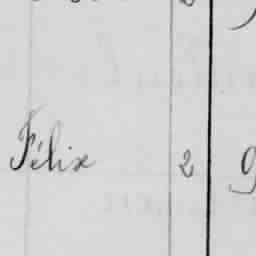 Félix 2 9